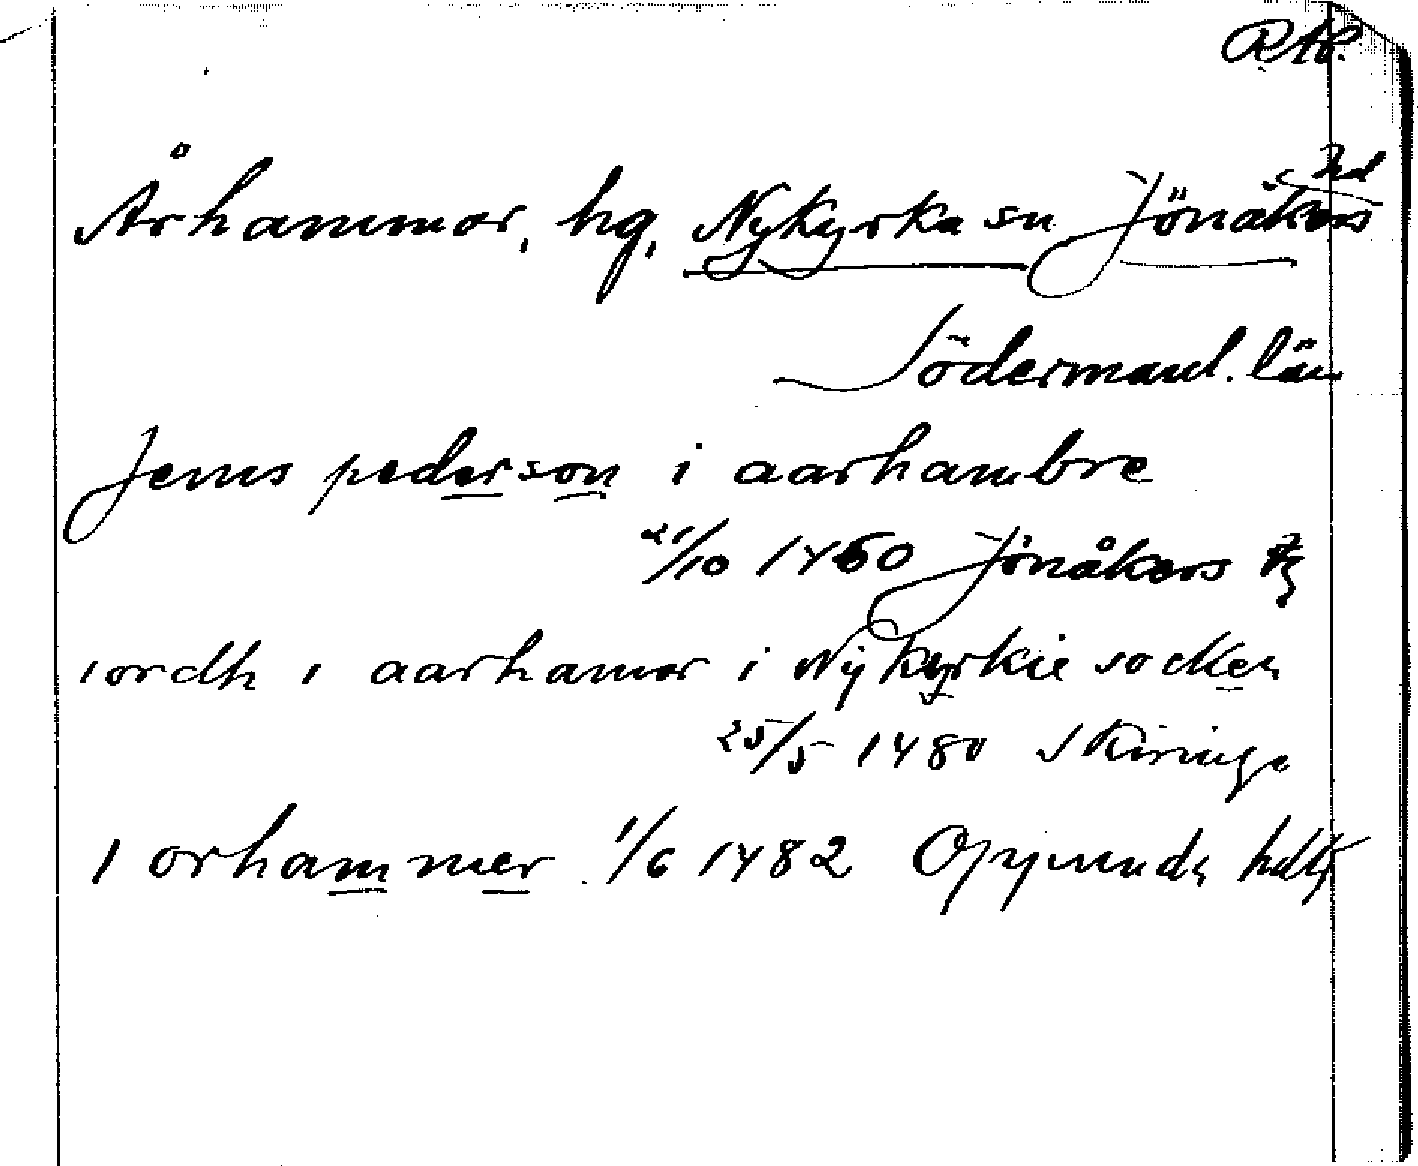 RAp.
Århammar, hg, Nykyrka sn Jönåkers hd
Södermanl. län
Jenis pederson i aarhambre
21/10 1450 Jönåkers tg
iordh i aarhamar i Nykyrkie socken
25/5 1480 Skiringe
I orhammer 1/6 1482 Oppunda hdtg